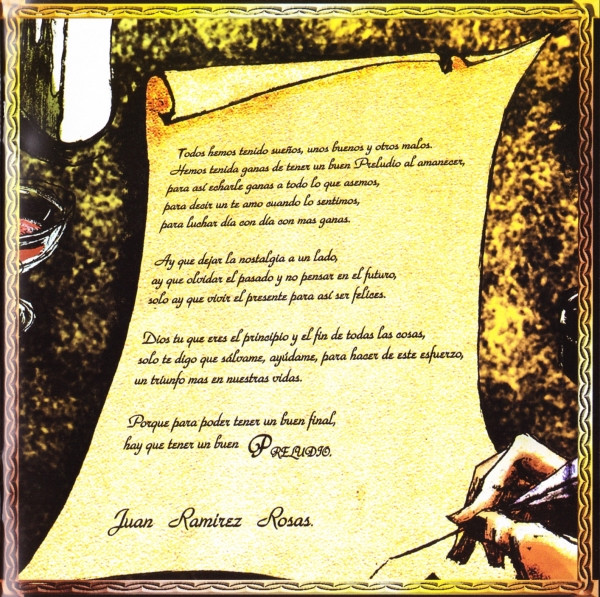 Todos hemos tenido sueños, unos buenos y otros malos.
Hemos tenida ganas de tener un buen Preludio al amanecer,
para así echarle ganas a todo lo que asemos,
para decir un te amo cuando lo sentimos,
para luchar día con día con mas ganas.
Ay que dejar la nostalgia a un lado,
ay que olvidar el pasado y no pensar en el futuro,
solo ay que vivir el presente para así ser felices.
Dios tu que eres el principio y el fin de todas las cosas,
solo te digo que sálvame, ayúdame, para hacer de este esfuerzo,
un triunfo mas en nuestras vidas.
Porque para poder tener un buen final,
hay que tener un buen PRELUDIO.
Juan Ramírez Rosas.